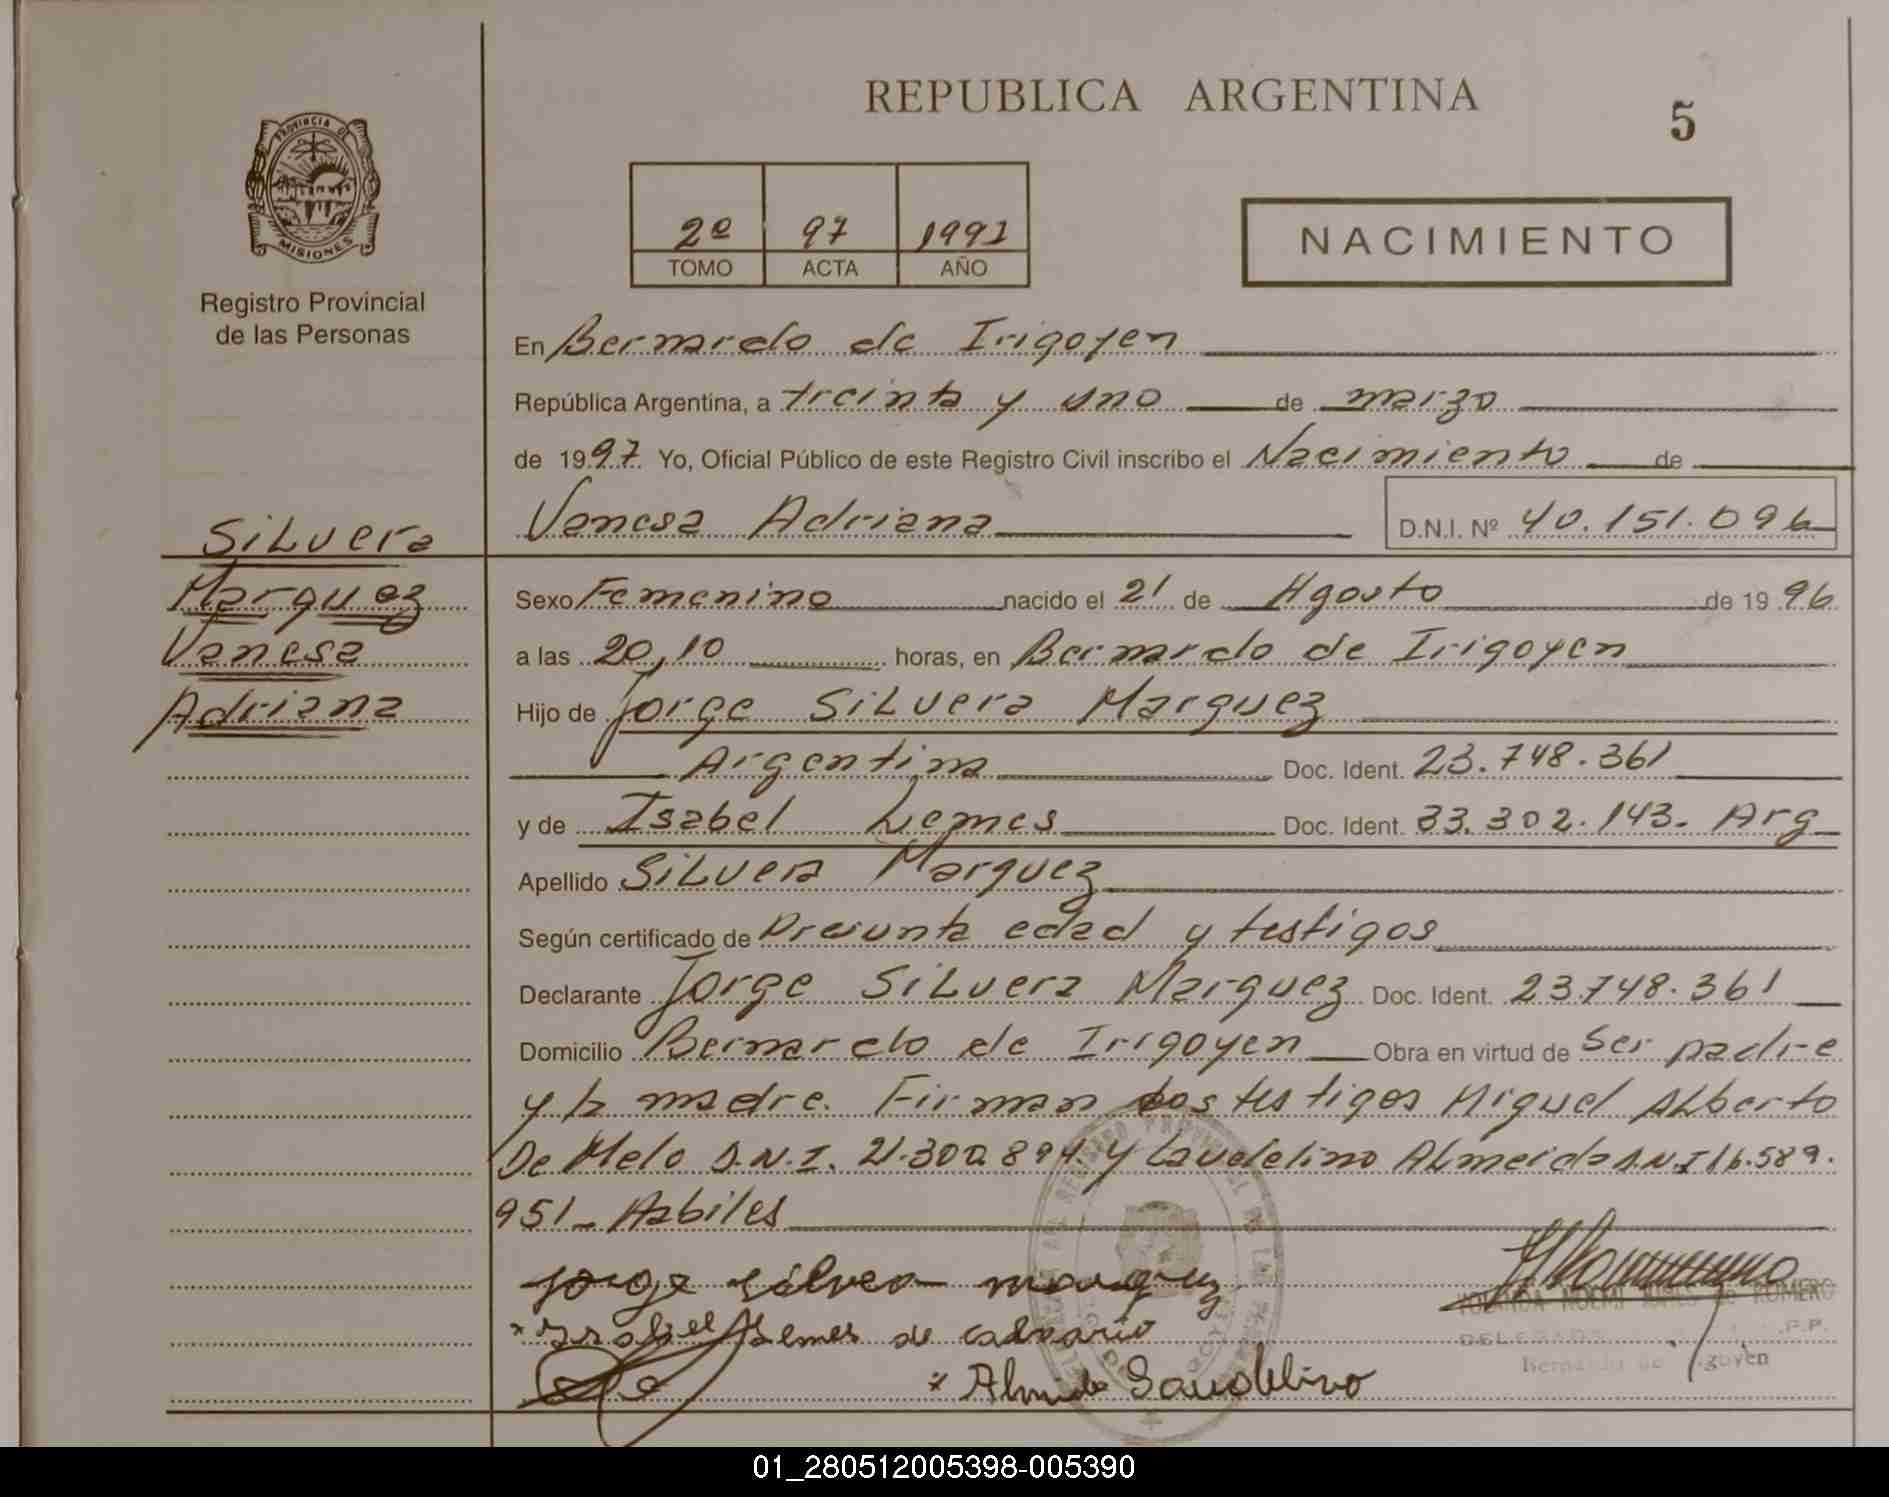 REPUBLICA ARGENTINA
5
PROVINCIA DE
MISIONES
Registro Provincial
de las Personas
2º 97 1997
TOMO ACTA AÑO
NACIMIENTO
En Bernardo de Irigoyen
República Argentina, a treinta y uno de marzo
de 1997 Yo, Oficial Público de este Registro Civil inscribo el Nacimiento de
Vanesa Adriana D.N.I. Nº 40.151.096
Silvera
Marquez
Vanesa
Adriana
Sexo Femenino nacido el 21 de Agosto de 1996
a las 20,10 horas, en Bernardo de Irigoyen
Hijo de Jorge Silvera Marquez
Argentina Doc. Ident. 23.748.361
y de Isabel Lemes Doc. Ident. 33.302.143. Arg
Apellido Silvera Marquez
Según certificado de Presunta edad y testigos
Declarante Jorge Silvera Marquez Doc. Ident. 23.748.361
Domicilio Bernardo de Irigoyen Obra en virtud de Ser padre
y la madre. Firman los testigos Miguel Alberto
De Melo D.N.I. 21.300.894 y Laudelino Almeida D.N.I 16.589.
951_ Habiles
Jorge Silvera marquez
x Isabel Lemes de calvario
x Almeida Laudelino
ROMERO
DELEGADA P.P.
Bernardo de Irigoyen
01_280512005398-005390